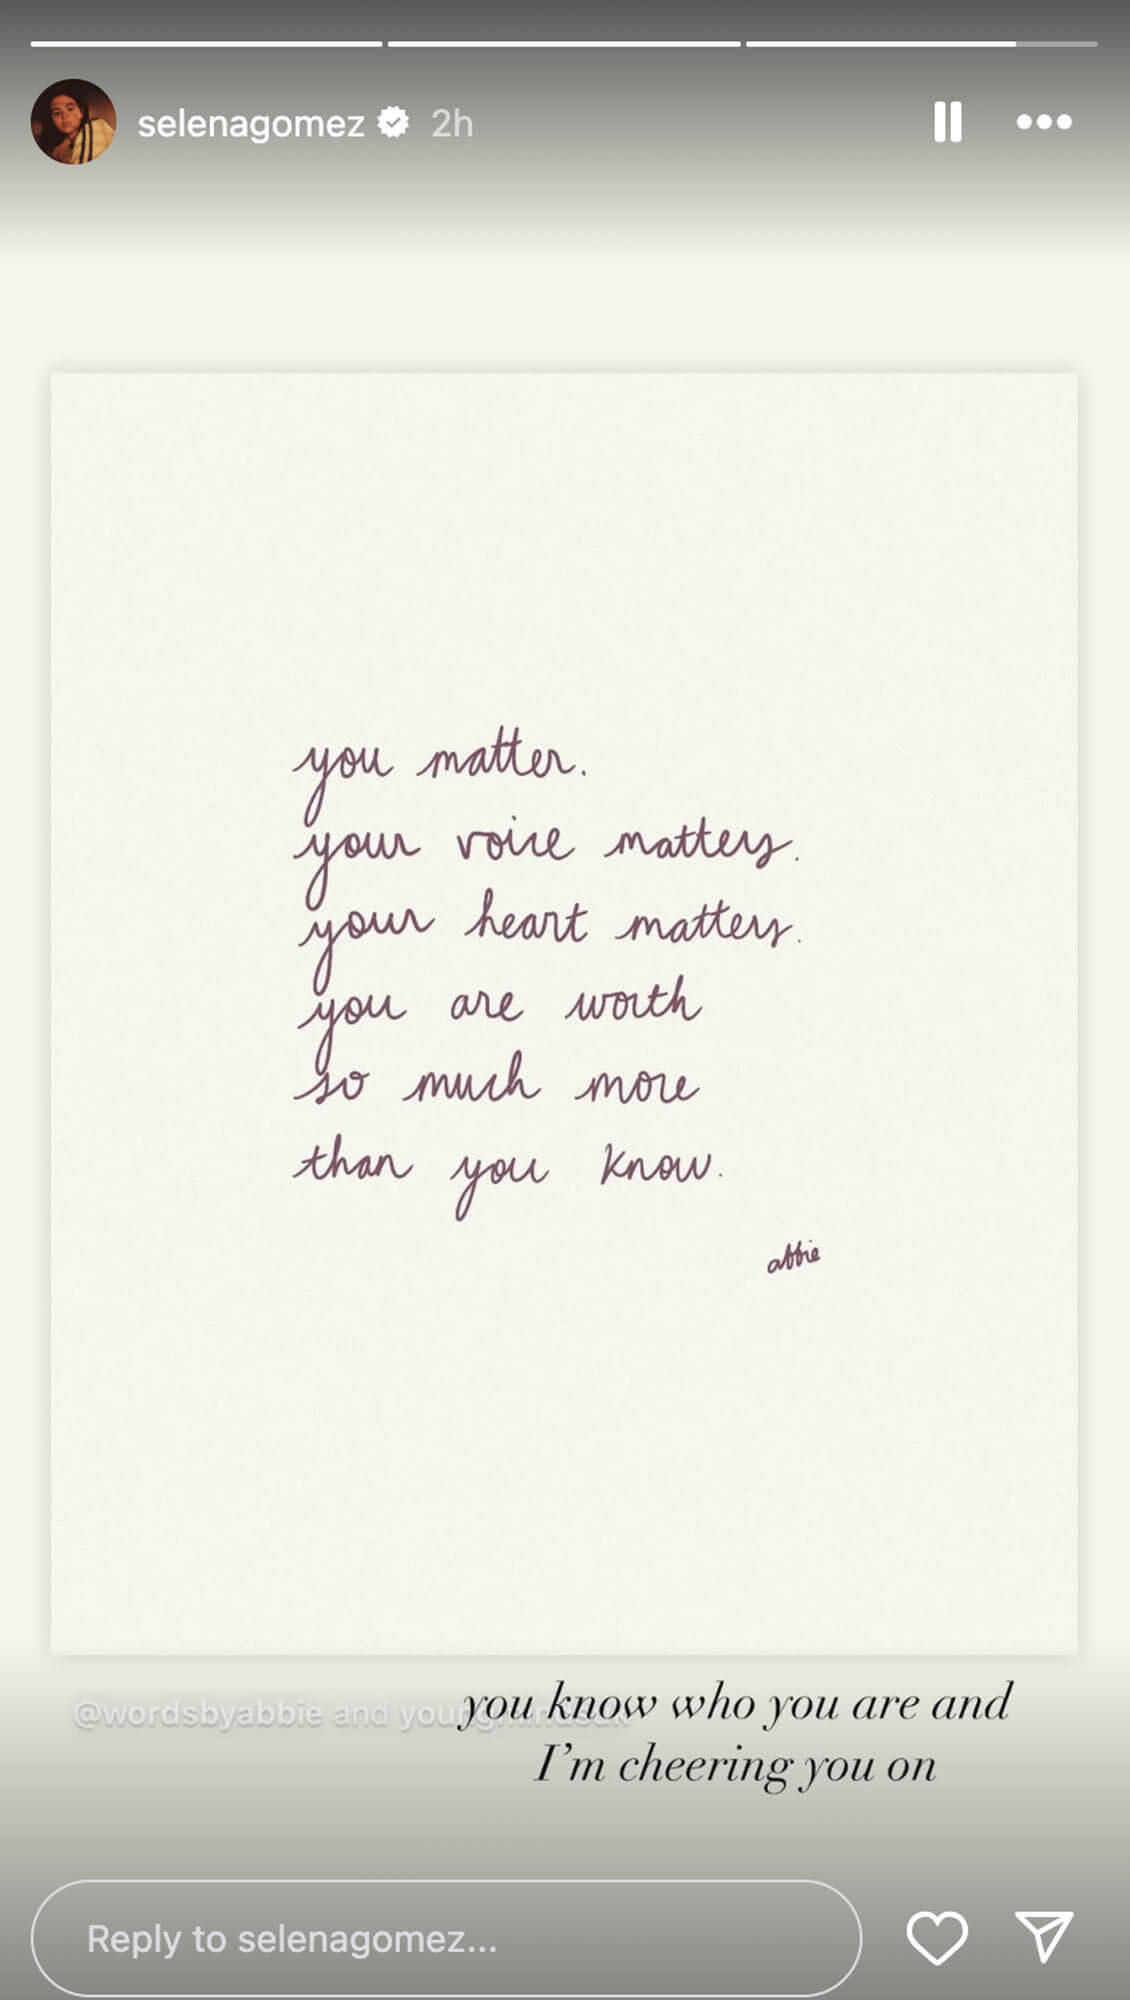 selenagomez 2h
you matter.
your voice matters.
your heart matters.
you are worth
so much more
than you know.
abbie
@wordsbyabbie and
you know who you are and
I'm cheering you on
Reply to selenagomez...